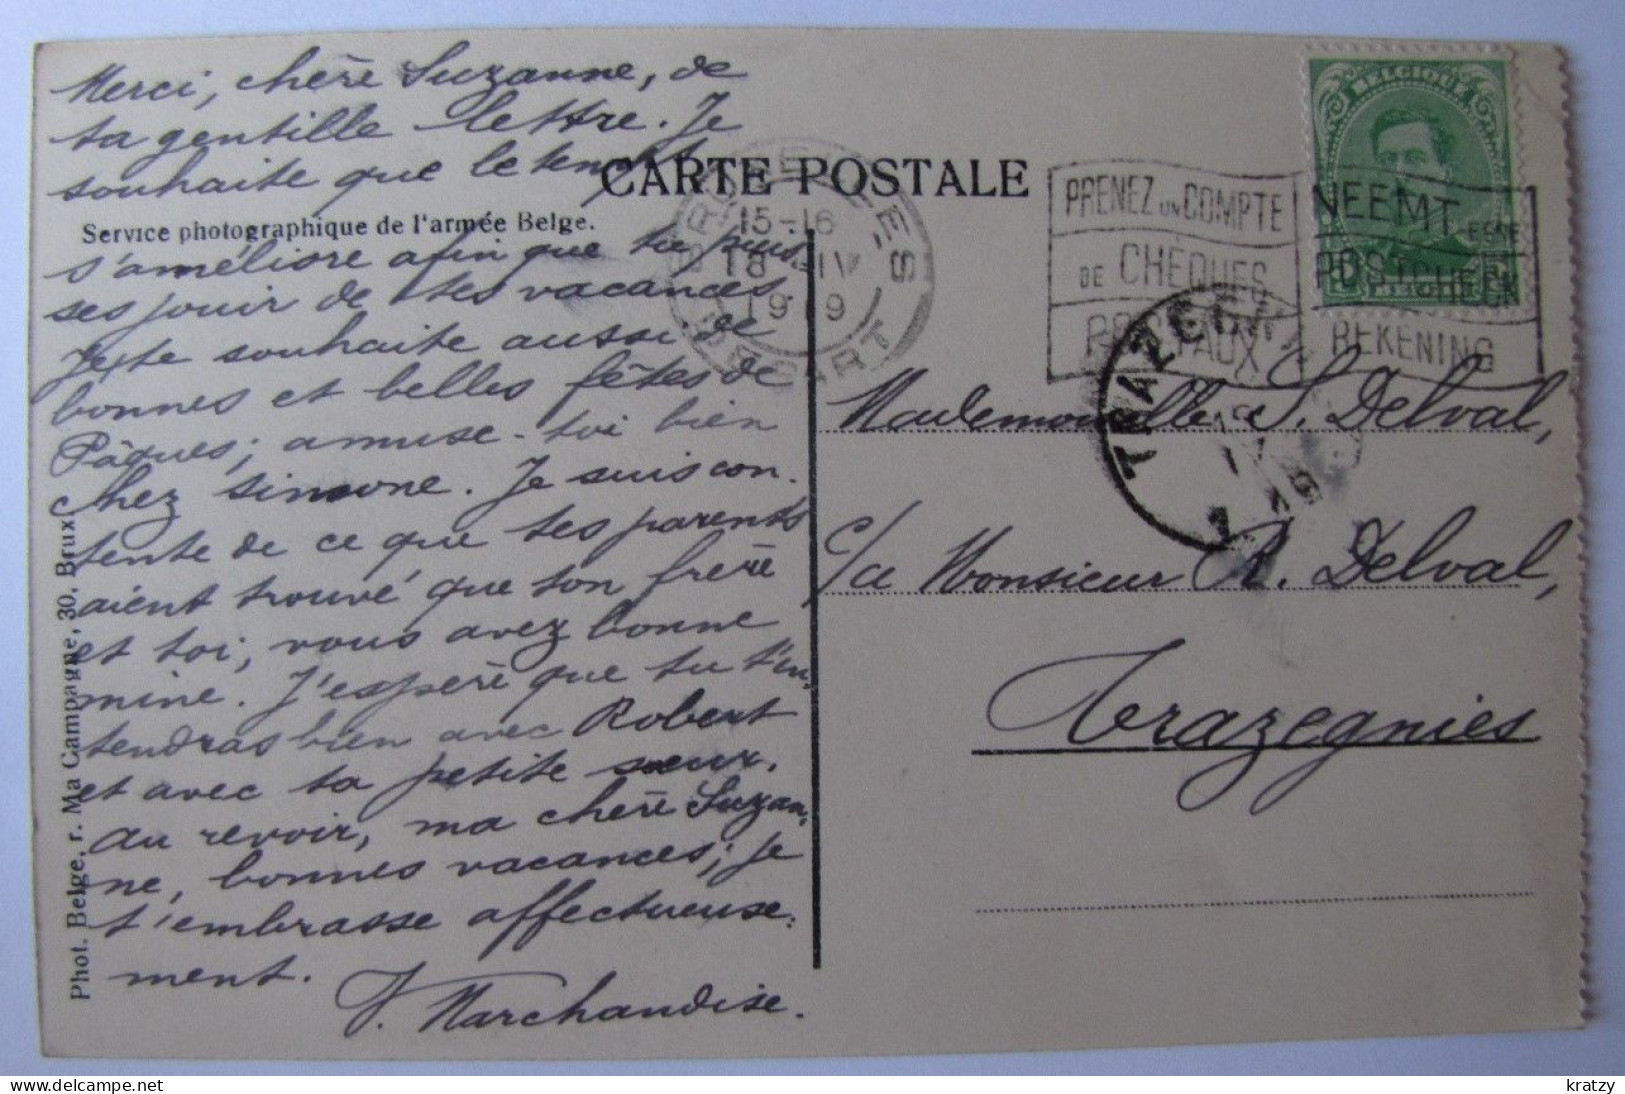 Merci, chère Suzanne, de
ta gentille lettre. Je
souhaite que le temps
s'améliore afin que tu puis-
ses jouir de tes vacances.
Je te souhaite aussi de
bonnes et belles fêtes de
Pâques; amuse-toi bien
chez Simonne. Je suis con-
tente de ce que tes parents
aient trouvé que ton frère
et toi, vous avez bonne
mine. J'espère que tu t'en-
tendras bien avec Robert
et avec ta petite sœur.
Au revoir, ma chère Suzan-
ne, bonnes vacances; je
t'embrasse affectueuse-
ment.
Y. Marchandise.
CARTE POSTALE
Service photographique de l'armée Belge.
Phot. Belge, r. Ma Campagne, 30, Brux
15-16
18 IV
1919
DÉPART
PRENEZ UN COMPTE
DE CHÈQUES
POSTAUX
NEEMT EENE
POSTCHECK
REKENING
BELGIQUE
Mademoiselle S. Delval,
c/o Monsieur R. Delval,
Trazegnies
kratzy